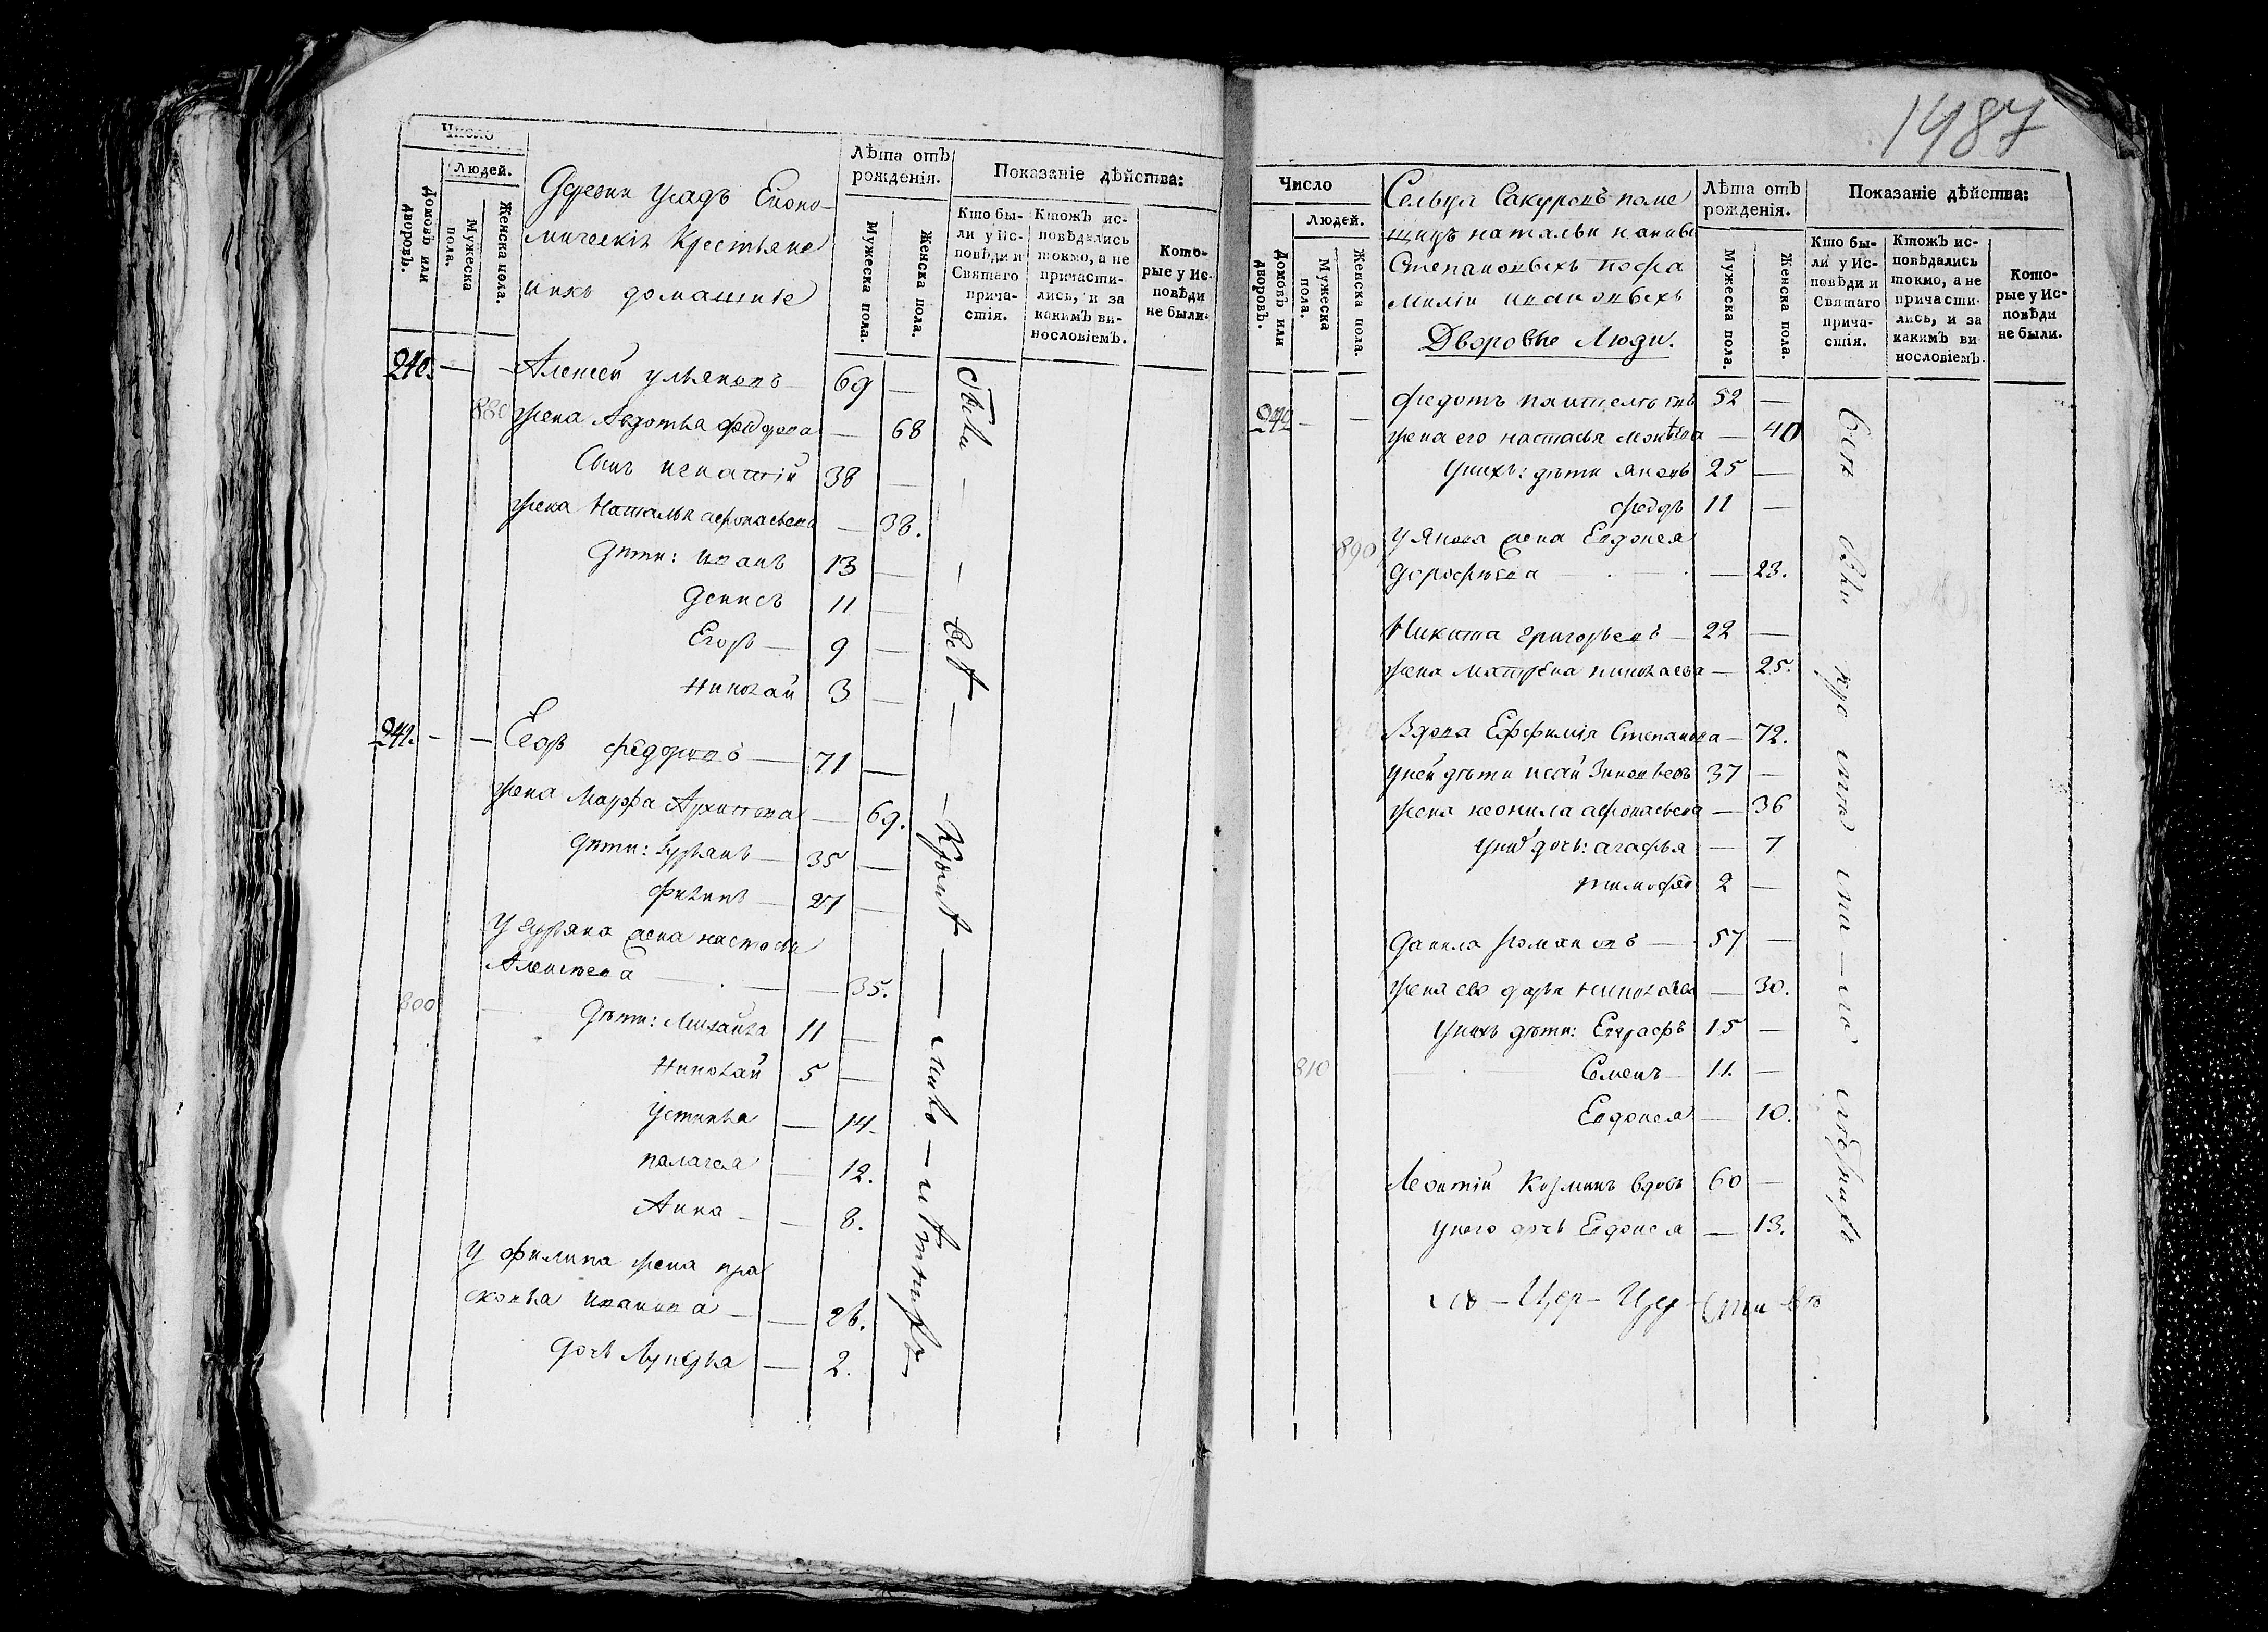 Число
Людей.
Домовъ или дворовъ.
Мужеска пола.
Женска пола.
Дерев&#1085;и Усадъ Еконо-
мическія Крестьяне
и ихъ домашніе
Лѣта отъ рожденія.
Мужеска пола.
Женска пола.
Показаніе дѣйства:
Кто бы-
ли у Ис-
повѣди и
Святаго
прича-
стія.
Ктожъ ис-
повѣдались
токмо, а не
причасти-
лись, и за
какимъ ви-
нословіемъ.
Кото-
рые у Ис-
повѣди
не были.
240. — — Алексей ульяновъ — 69 —
жена Авдотья федорова — 68
Сынъ игнатій 38 —
жена Наталья афонасьева — 38.
Дѣти: иванъ 13 —
Денисъ 11 —
Егоръ — 9 —
Николай 3 —
241. — — Егоръ федоровъ — 71 —
жена Марфа Архипова — 69.
Дѣти: Гурьянъ — 35 —
филипъ — 27 —
У Гурьяна жена настасья
Алексеева — 35.
800
Дѣти: Михайла 11 —
Николай 5 —
Устинья — 14.
палагея — 12.
Анна — — 8.
У филипа жена пра
сковья иванова — — 26.
дочь Лукерья — 2.
1487
Число
Людей.
Домовъ или дворовъ.
Мужеска пола.
Женска пола.
Сельца Сакуровъ поме
щицъ натальи и анны
Степановыхъ по фа
миліи ивановыхъ
Дворовые Люди.
Лѣта отъ
рожденія.
Мужеска пола.
Женска пола.
Показаніе дѣйства:
Кто бы-
ли у Ис-
повѣди и
Святаго
прича-
стія.
Ктожъ ис-
повѣдались
токмо, а не
причасти-
лись, и за
какимъ ви
нословіемъ.
Кото-
рые у Ис-
повѣди
не были.
242 — — федотъ 52 —
жена его настасья — 40
у нихъ: дѣти яковъ 25 —
федоръ 11 —
у Якова жена Евдокея
890
дорофѣева — 23.
Никита григорьевъ — 22 —
жена Матрена николаева — 25.
Вдова Ефимія Степанова — 72.
у ней дѣти исай Зиновьевъ 37 —
жена неонила афонасьева — 36
дочь: агафья — 7
тимофей 2 —
Данила романовъ — 57 —
жена его дарья николаева — 30.
у нихъ дѣти: Евграфъ 15 —
810
Семенъ — 11. —
Евдокея — 10.
Леонтій Козминъ вдовъ 60 —
у него дочь Евдокея — 13.